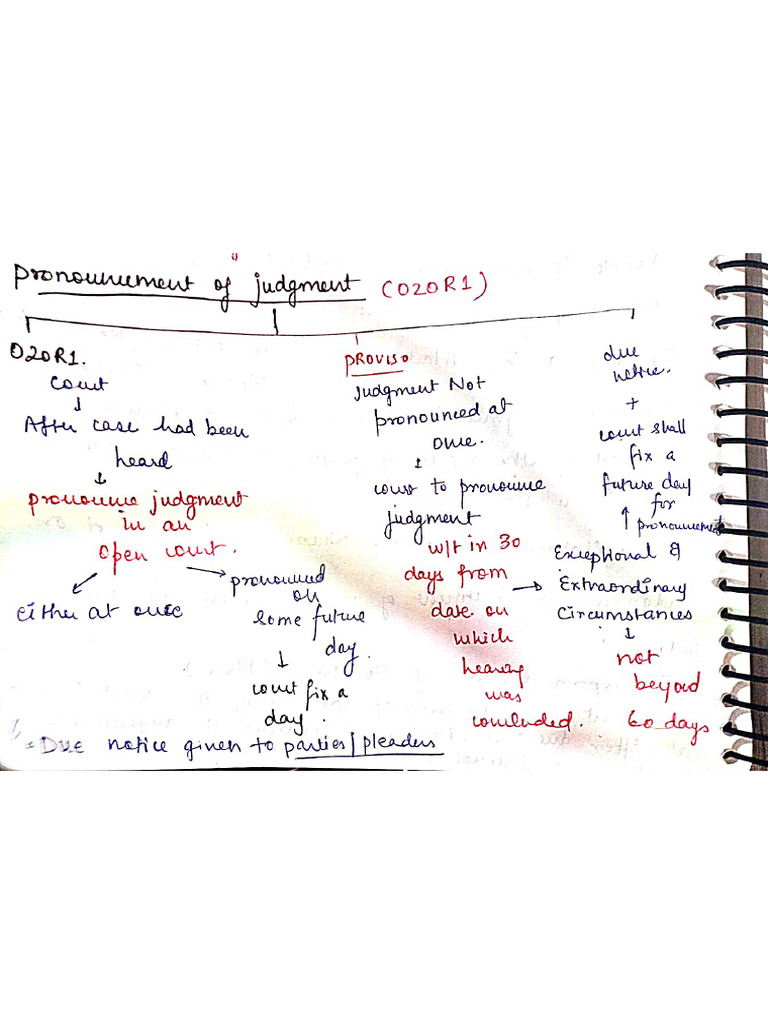 Pronouncement of judgment (O20R1)
O20R1.
Court
↓
After case had been
heard
↓
pronounce judgment
in an
open court.
either at once
pronounced
on
some future
day.
↓
court fix a
day.
Due notice given to parties/pleaders
PROVISO
Judgment Not
pronounced at
once.
↓
court to pronounce
judgment
w/t in 30
days from
date on
which
hearing
was
concluded.
→
Exceptional &
Extraordinary
circumstances
↓
not
beyond
60 days
↑
due
notice.
+
court shall
fix a
future day
for
pronouncement